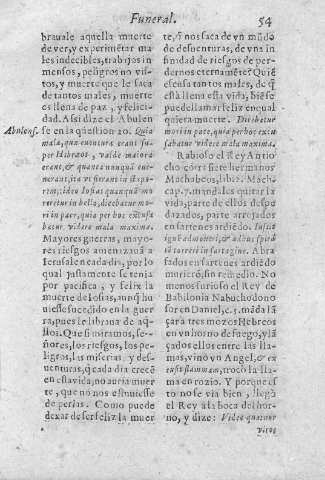 Funeral. 54
brauale aquella muerte
de ver, y experimẽtar ma
les indecibles, trabajos in
mensos, peligros no vis-
tos, y muerte que le saca
de tantos males, muerte
es llena de paz, y felici-
dad. Assi dize el Abulen
Abulens.
se en la question 20. Quia
mala, quæ euentura erant su-
per Hebræos, valde maiora
erant, &
ideo Iosias quanquã mo
reretur in bello, dicebatur mo-
ri in pace, quia per hoc excusa
batur videre mala maxima.
Mayores guerras, mayo-
res riesgos amenazauã a
Ierusalen cada dia, por lo
qual justamente se tenia
por pacifica, y feliz la
muerte de Iosias, aunq̃ hu
uiesse sucedido en la guer
ra, pues le libraua de aq̃-
llos. Que si miramos, se-
ñores, los riesgos, los pe-
ligros, las miserias, y des-
uenturas, q̃ cada dia crecẽ
en esta vida, no auria muer
te, que no nos estuuiesse
de perlas. Como puede
dexar de ser feliz la muer
te, q̃ nos saca de vn mũdo
de desuenturas, de vna in
finidad de riesgos de per-
dernos eternamẽte? Quiẽ
escusa tantos males, de q̃
està llena esta vida, biẽ se
puede llamar feliz en qual
quiera muerte. Dicebatur
mori in pace, quia per hoc excu
sabatur videre mala maxima.
Rabioso el Rey Antio
cho contra siete hermanos
Machabeos, libr. 2. Mach.
cap. 7. mandales quitar la
vida, parte de ellos despe
dazados, parte arrojados
en sartenes ardiẽdo. Iussit
igni admoueri, & adhuc spirã
tem torreri in sartagine. Abra
sados en sartenes ardiẽdo
murierõ, sin remedio. No
menos furioso el Rey de
Babilonia Nabuchodono
sor en Daniel, c. 3. mãda lã
çar a tres moços Hebreos
en vn horno de fuego, y lã
çados ellos entre las lla-
mas, vino vn Angel, & ex
cussit flammam, trocò la lla
ma en rozio. Y porque es
to no se via bien, llegò
el Rey a la boca del hor-
no, y dize: Video quatuor
viros